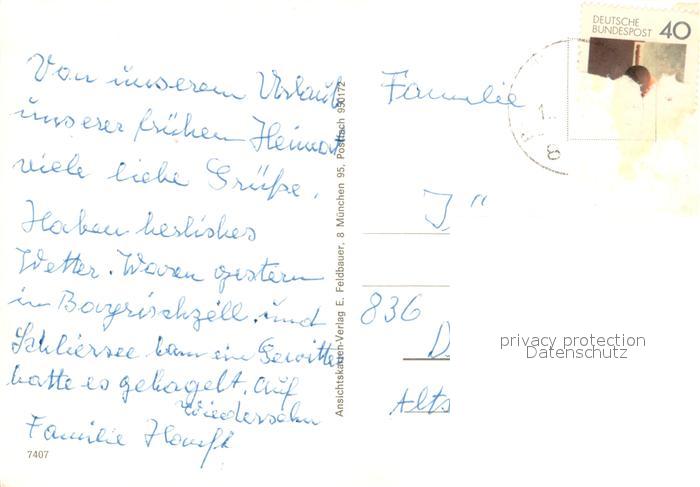 Von unserem Urlaub
unserer frühen Heimat
viele liebe Grüße.
Haben herliches
Wetter. Waren gestern
in Bayrischzell. und
Schliersee kam ein Gewitter
hatte es gehagelt. Auf
Wiedersehn
Familie
7407
Ansichtskarten-Verlag E. Feldbauer, 8 München 95, Postfach 950172
DEUTSCHE
BUNDESPOST 40
Familie
J"
836
D
Alts
privacy protection
Datenschutz